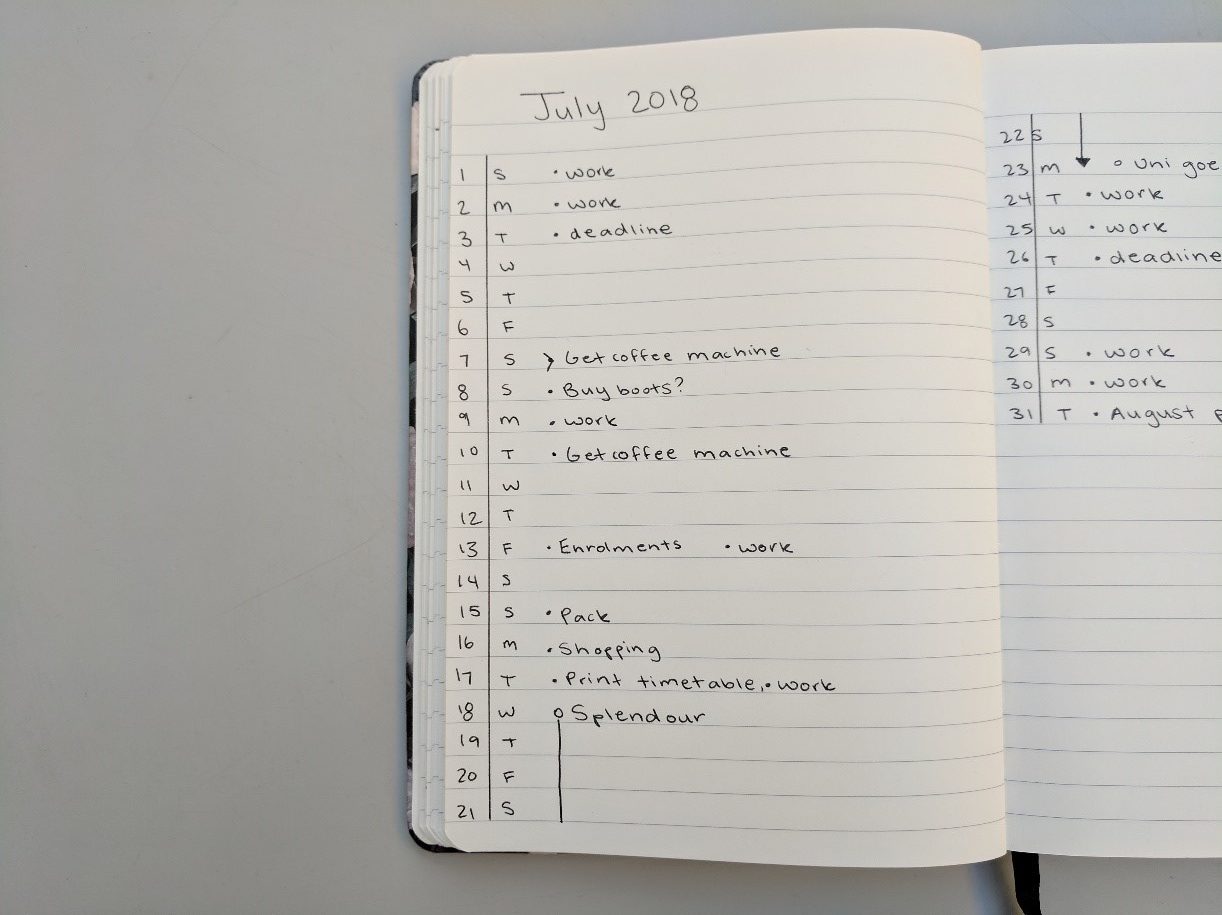 July 2018
1 S • work
2 M • work
3 T • deadline
4 W
5 T
6 F
7 S > Get coffee machine
8 S • Buy boots?
9 M • work
10 T • Get coffee machine
11 W
12 T
13 F • Enrolments • work
14 S
15 S • Pack
16 M • Shopping
17 T • Print timetable, • work
18 W o Splendour
19 T
20 F
21 S
22 S
23 M o Uni goe
24 T • work
25 W • work
26 T • deadline
27 F
28 S
29 S • work
30 M • work
31 T • August